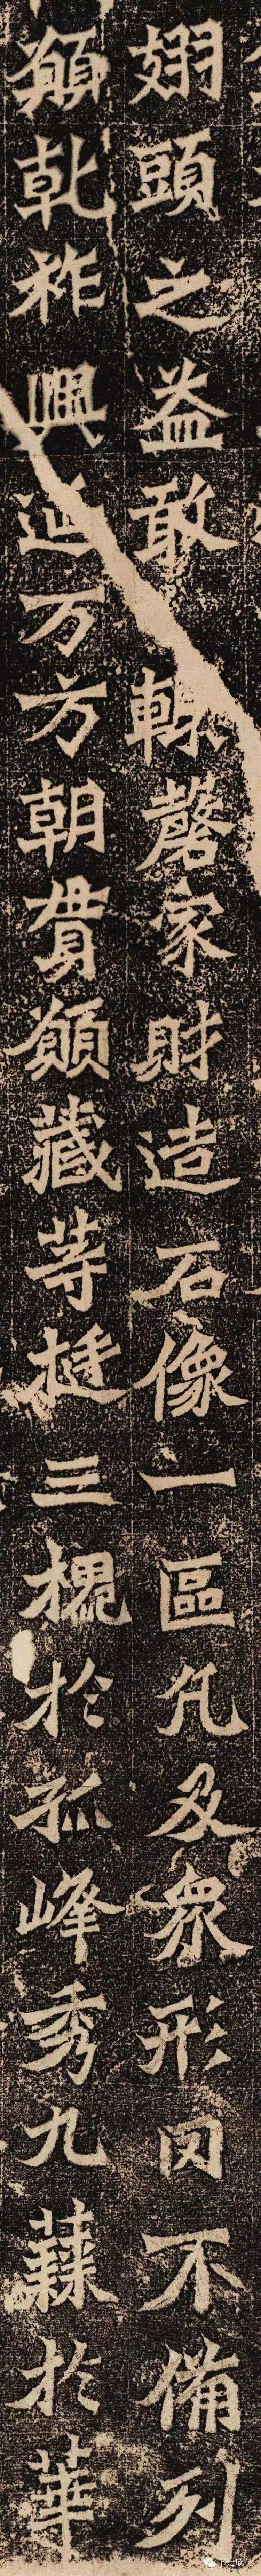 翅頭之益敢輒磬家財造石像一區凡及衆形罔不備列
願乹祚興延万方朝貫願藏等挺三槐於孤峰秀九蕀於華